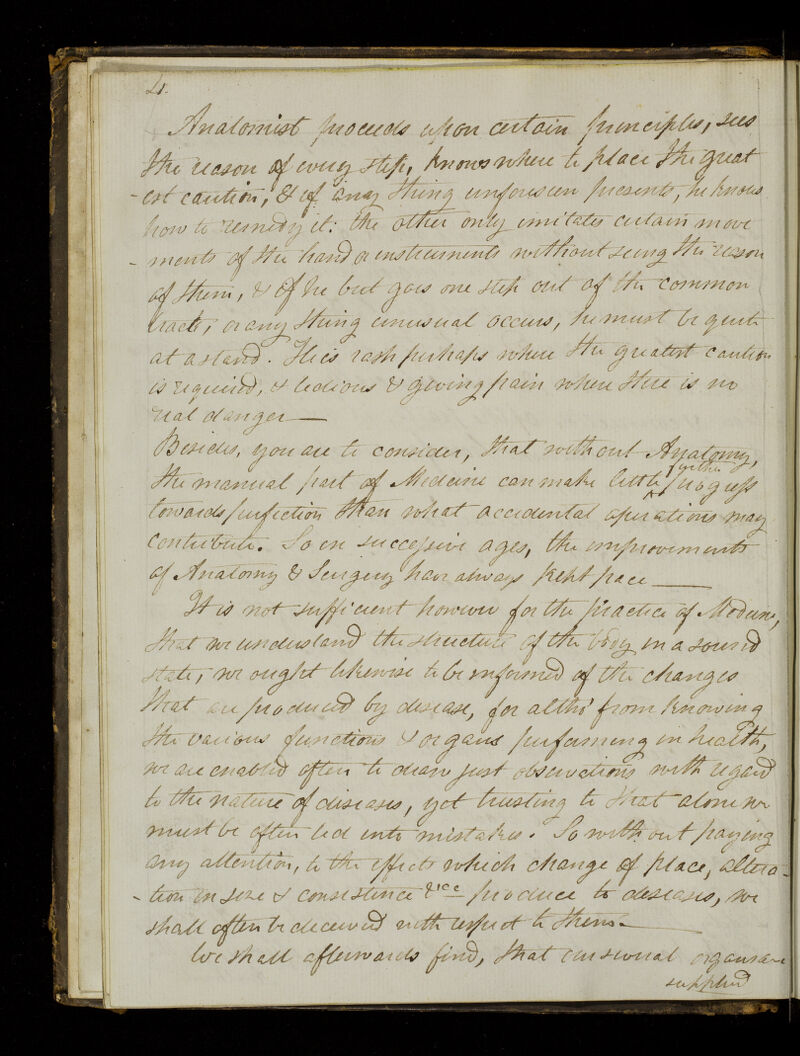 4.
Anatomist proceeds upon certain principles, sees
the reason of every step, knows where to place the great
-est caution, & if any thing unforeseen presents, he knows
how to remedy it: the other only imitates certain move
- ments of the hand or instruments without seeing the reason
of them, & if he but goes one step out of the common
tract, or any thing unusual occurs, he must be quite
at a stand. He is rash perhaps where the greatest caution
is required, & tedious & giving pain where there is no
real danger —
Besides, you are to consider, that without Anatomy,
the manual part of Medicine can make little further progress
towards perfection than what accidental operations may
contribute. So in successive ages, the improvements
of Anatomy & Surgery have always kept pace —
It is not sufficient however for the practice of Medicine,
that we understand the structure of the body in a sound
state, we ought likewise to be informed of the changes
that are produced by disease, for altho' from knowing
the various functions & organs performing in health,
we are enabled often to draw just observations with regard
to the nature of diseases, yet trusting to that alone we
must be often led into mistakes. So without paying
any attention, to the effects which change of place, altera-
- tion in size & consistence &cc produce to diseases, we
shall often be deceived with respect to them. —
We shall afterwards find, that our several organs are
supplied